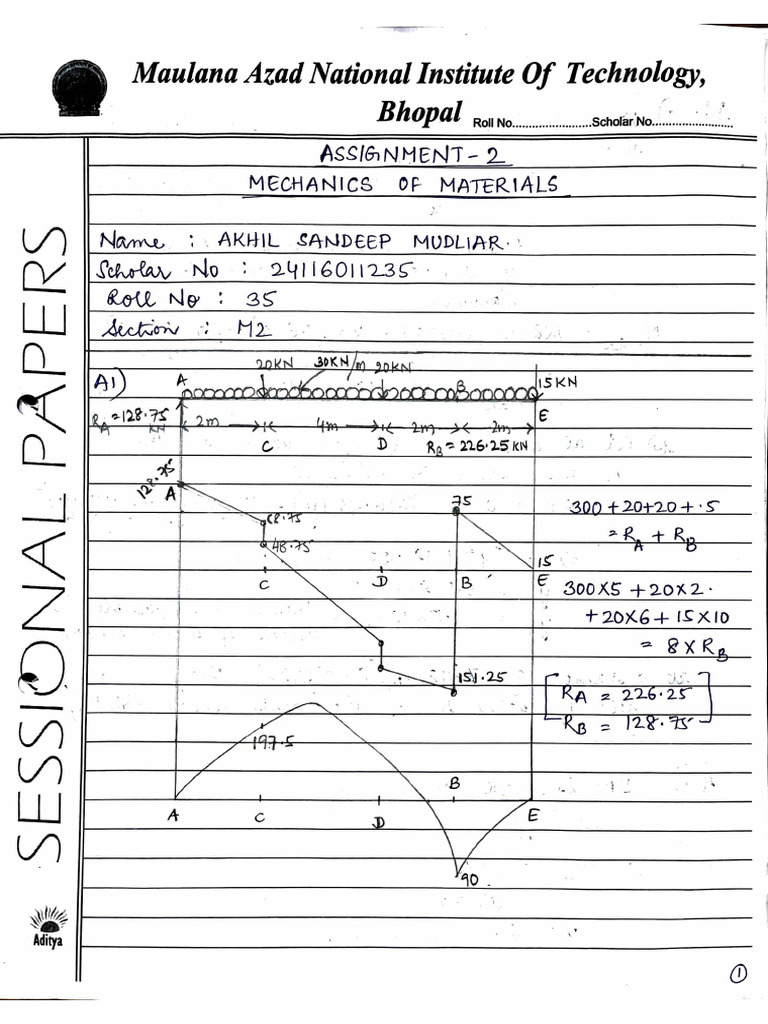 Maulana Azad National Institute Of Technology,
Bhopal
Roll No........................Scholar No........................
SESSIONAL PAPERS
Aditya
ASSIGNMENT-2
MECHANICS OF MATERIALS
Name : AKHIL SANDEEP MUDLIAR.
Scholar No : 24116011235
Roll No : 35
Section : M2
A1)
20KN 30KN/m 20KN
A B 15KN
RA=128.75 KN
2m 4m 2m 2m E
C D RB=226.25 KN
128.75
A
68.75
48.75
75
15
C D B E
151.25
300+20+20+.5
= RA + RB
300×5 +20×2.
+20×6+15×10
= 8×RB
RA = 226.25
RB = 128.75
197.5
B
A C D E
90
1